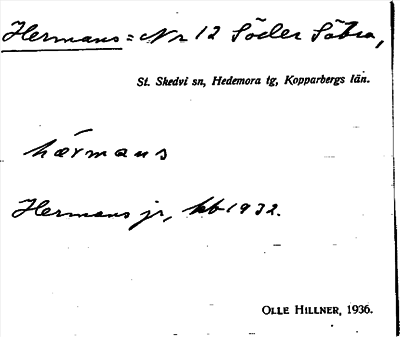 Hermans = Nr 12 Söder Sätra,
St. Skedvi sn, Hedemora tg, Kopparbergs län.
hærmans
Hermans jr, kb 1932.
OLLE HILLNER, 1936.